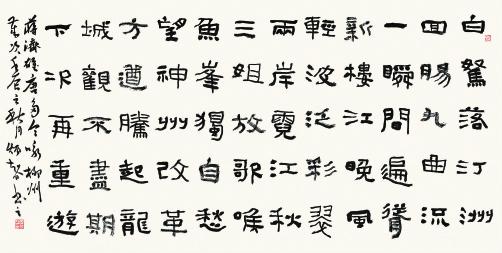 白鷺落汀洲
回腸九曲流
一瞬間遍聳
新樓江晚風
輕波泛彩翠
兩岸霓江秋
三姐放歌喉
魚峯獨自愁
望神州改革
方遒騰起龍
城觀不盡期
下次再重遊
蔣濟雄唐多令咏柳州
之秋月書之